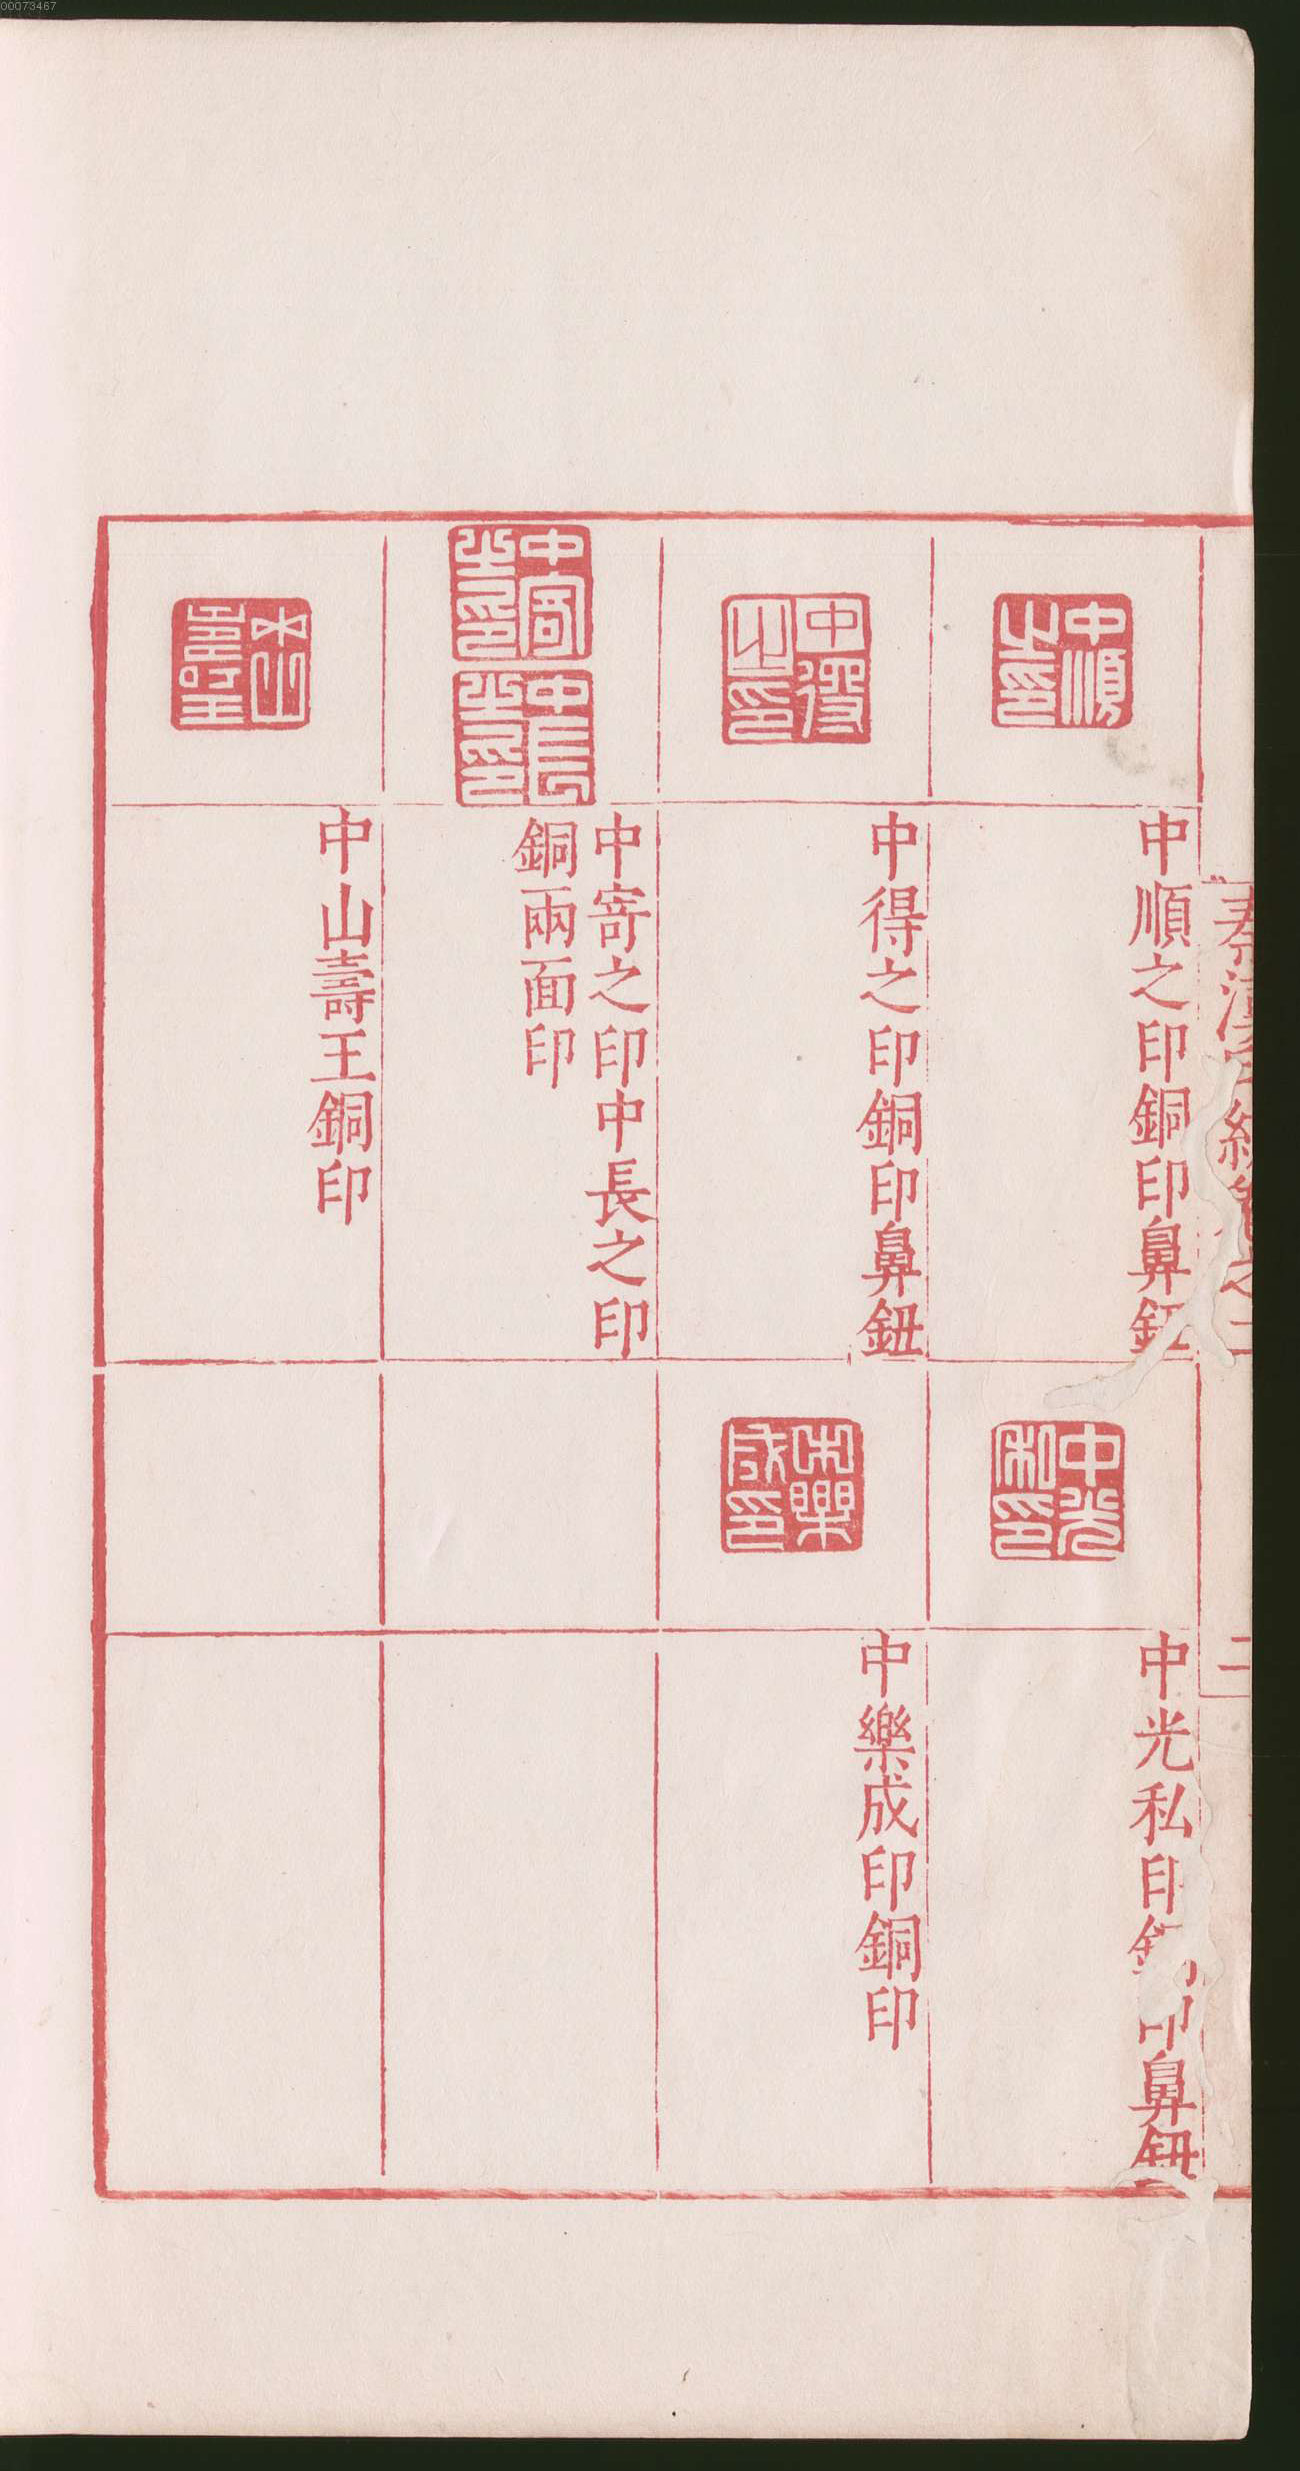 00073467
中順之印
中順之印銅印鼻鈕
中光私印
中光私印銅印鼻鈕
中得之印
中得之印銅印鼻鈕
中樂成印
中樂成印銅印
中寄之印
中長之印
中寄之印中長之印
銅兩面印
中山壽王
中山壽王銅印
二